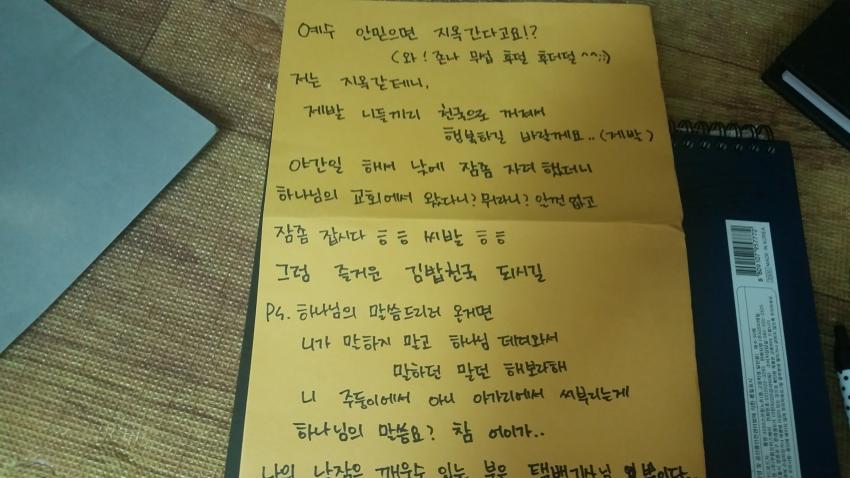 예수 안믿으면 지옥간다고요!?
(와! 존나 무섭 후덜 후더덜 ^^;;)
저는 지옥갈테니,
제발 니들끼리 천국으로 꺼져서
행복하길 바랄께요.. (제발)
야간일 해서 낮에 잠좀 자려 했더니
하나님의 교회에서 왔다니? 뭐라니? 알껀 없고
잠좀 잡시다 ㅎㅎ 씨발 ㅎㅎ
그럼 즐거운 김밥천국 되시길
PS. 하나님의 말씀드리러 온거면
니가 말하지 말고 하나님 데려와서
말하던 말던 해보라해
니 주둥이에서 아니 아가리에서 씨부리는게
하나님의 말씀요? 참 어이가..
나의 낮잠은 깨울수 있는 분은 택배기사님 뿐이다.
MADE IN KOREA